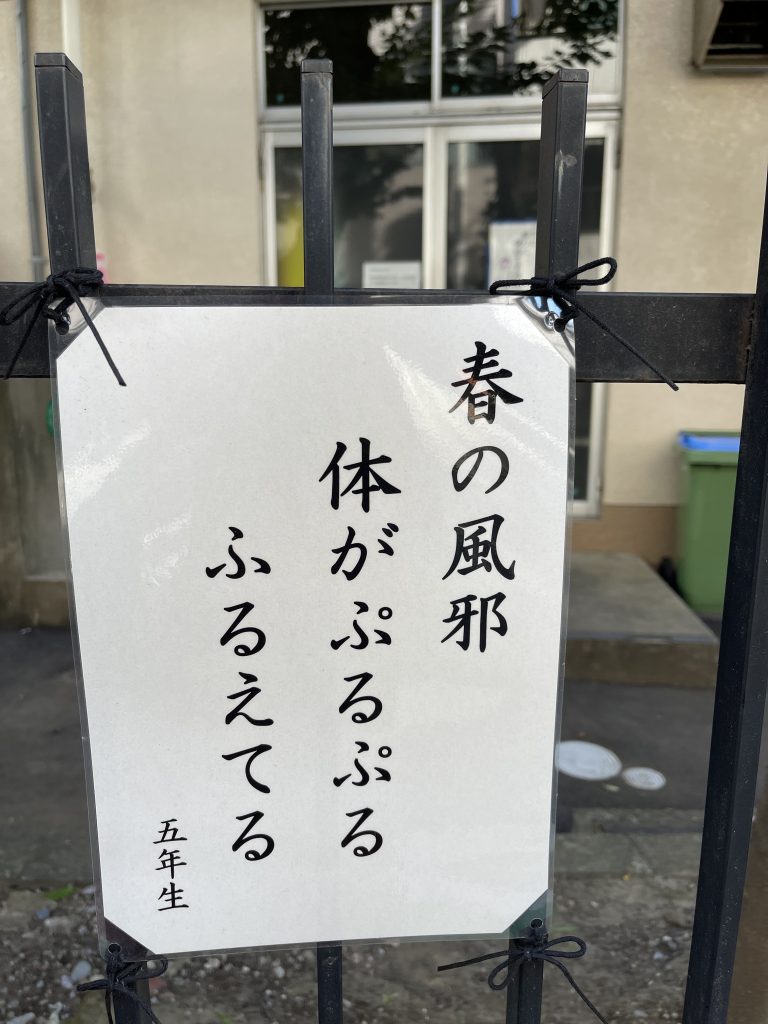 春の風邪
体がぷるぷる
ふるえてる
五年生